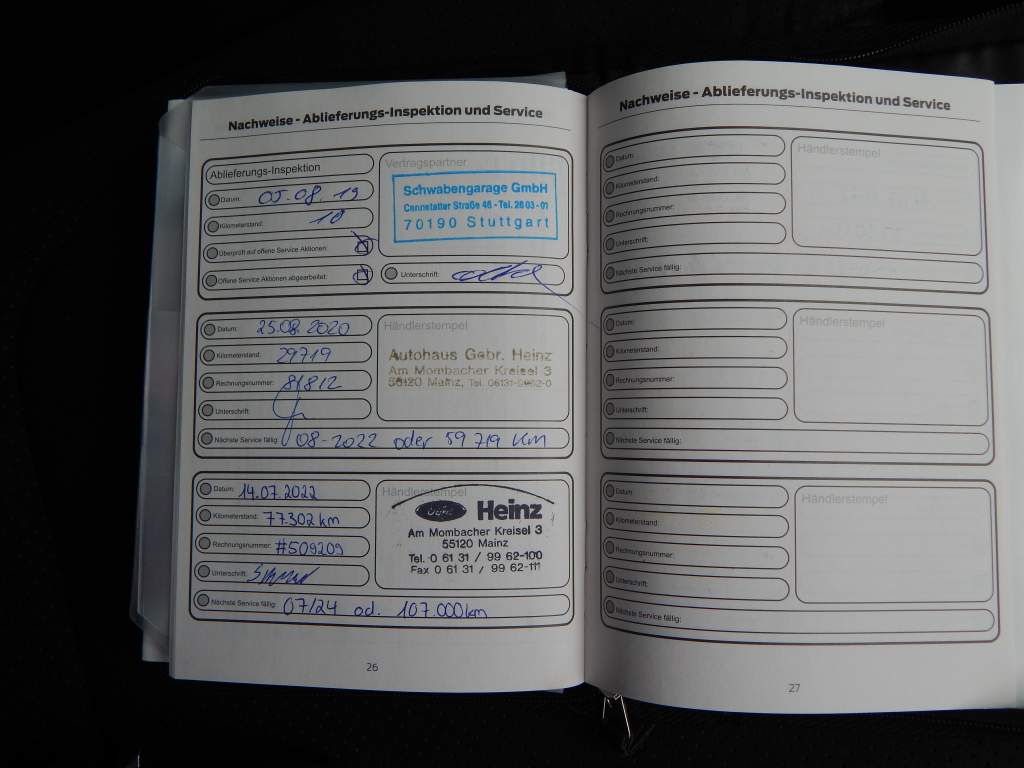 Nachweise - Ablieferungs-Inspektion und Service
Ablieferungs-Inspektion
Datum: 05.08.19
Kilometerstand: 10
Überprüft auf offene Service Aktionen:
Offene Service Aktionen abgearbeitet:
Vertragspartner
Schwabengarage GmbH
Cannstatter Straße 46 - Tel. 26 03 - 01
70190 Stuttgart
Unterschrift:
Datum: 25.08.2020
Kilometerstand: 29719
Rechnungsnummer: 81812
Unterschrift:
Händlerstempel
Autohaus Gebr. Heinz
Am Mombacher Kreisel 3
55120 Mainz, Tel. 06131-
Nächste Service fällig: 08-2022 oder 59719 Km
Datum: 14.07.2022
Kilometerstand: 77.302 km
Rechnungsnummer: #509209
Unterschrift:
Händlerstempel
Ford Heinz
Am Mombacher Kreisel 3
55120 Mainz
Tel. 0 61 31 / 99 62-100
Fax 0 61 31 / 99 62-111
Nächste Service fällig: 07/24 od. 107.000km
26
Nachweise - Ablieferungs-Inspektion und Service
Datum:
Kilometerstand:
Rechnungsnummer:
Unterschrift:
Händlerstempel
Nächste Service fällig:
Datum:
Kilometerstand:
Rechnungsnummer:
Unterschrift:
Händlerstempel
Nächste Service fällig:
Datum:
Kilometerstand:
Rechnungsnummer:
Unterschrift:
Händlerstempel
Nächste Service fällig:
27